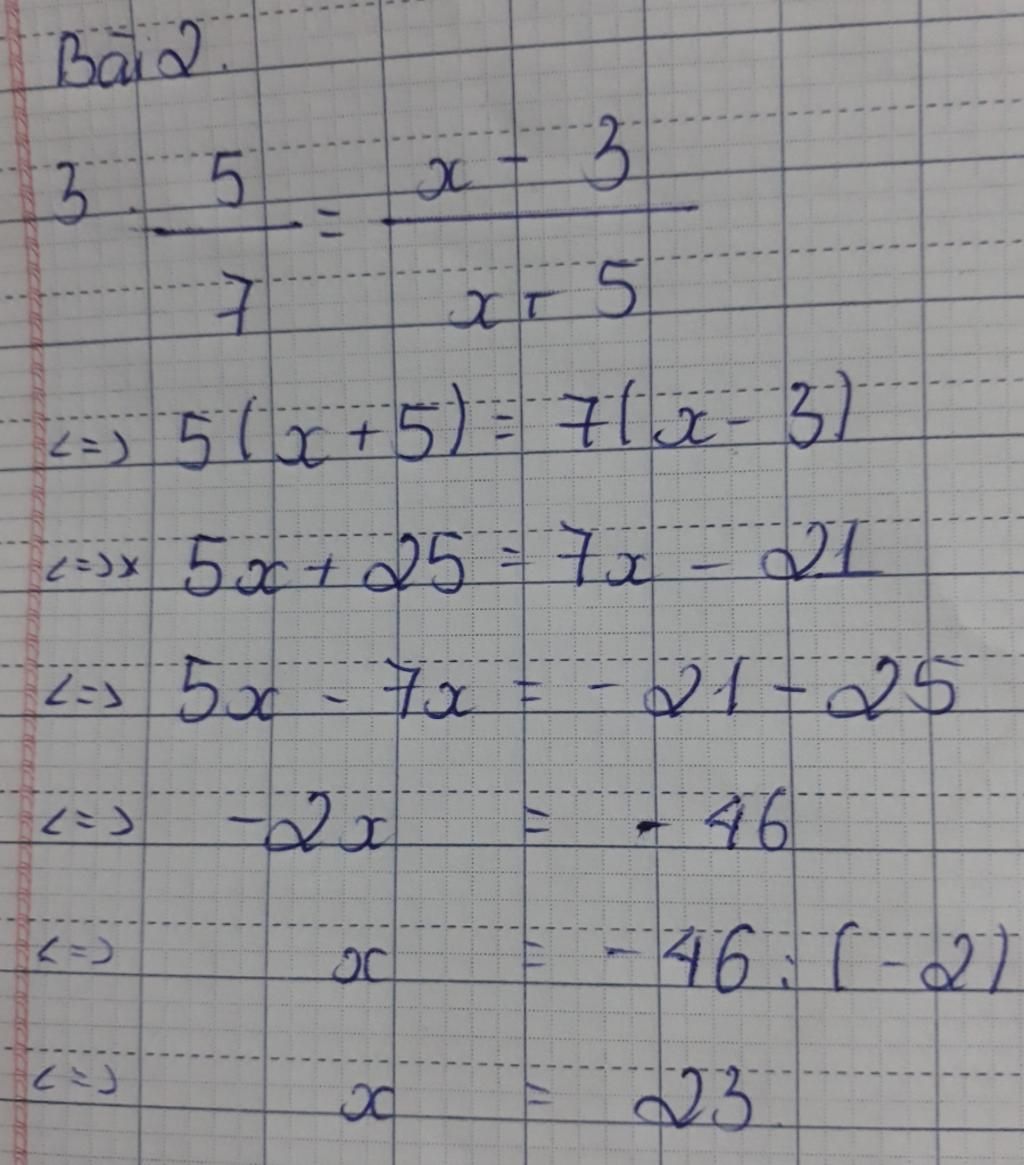 Bài 2.
3. 5/7 = x - 3/x + 5
<=> 5(x + 5) = 7(x - 3)
<=>x 5x + 25 = 7x - 21
<=> 5x - 7x = - 21 - 25
<=> -2x = - 46
<=> x = - 46 : (-2)
<=> x = 23